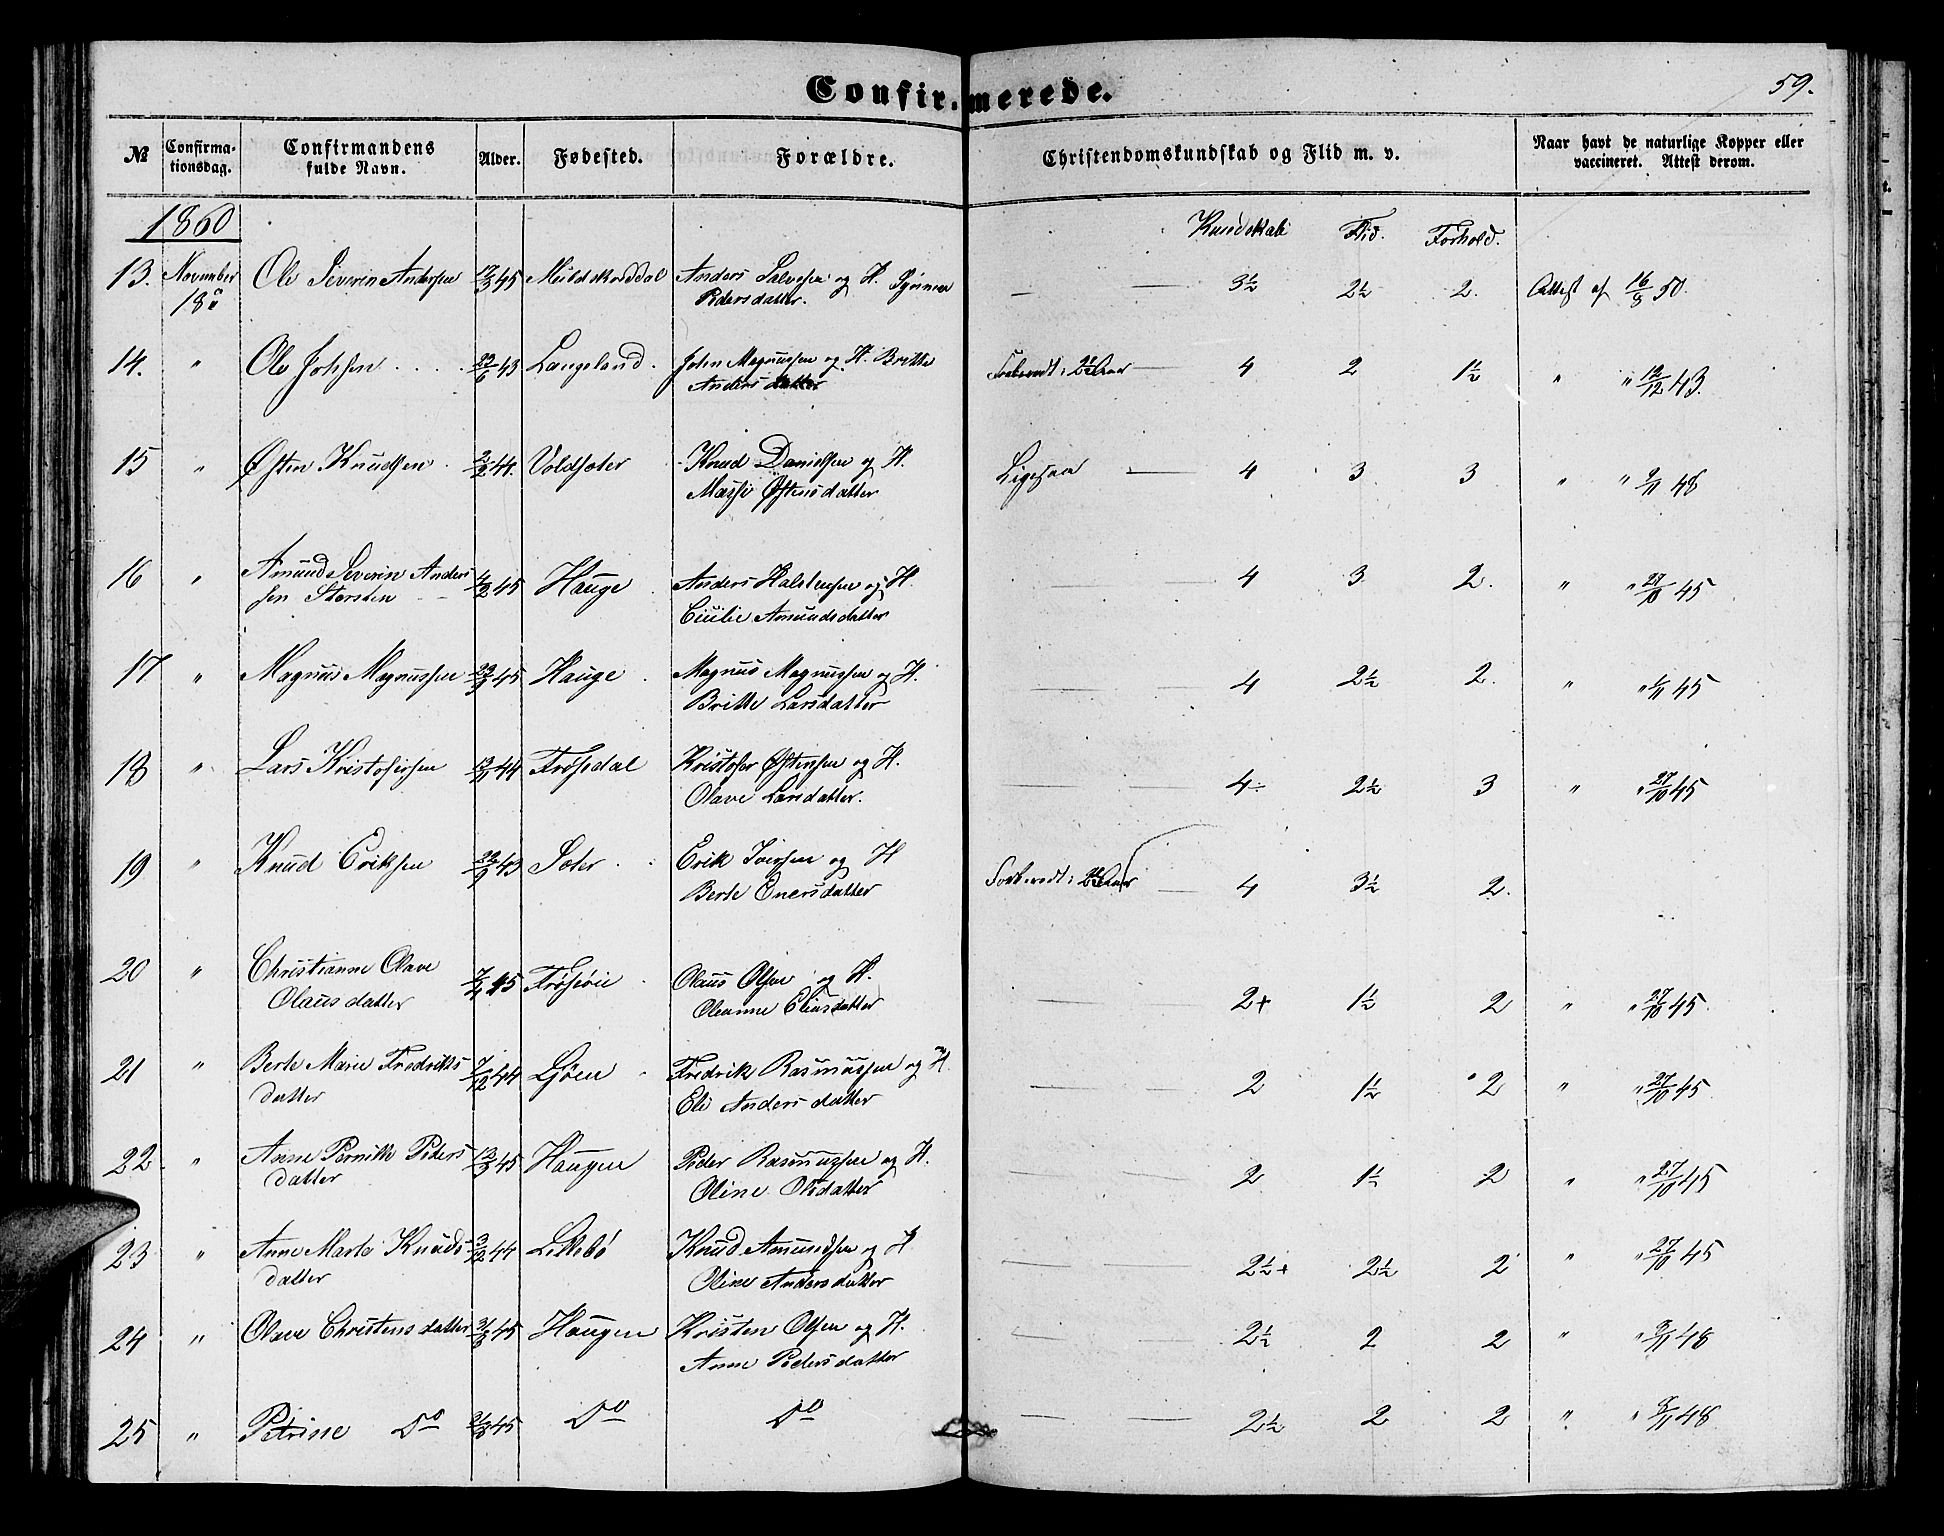 Confirmerede.
59.
№
Confirma-
tionsdag.
Confirmandens
fulde Navn.
Alder.
Fødested.
Forældre.
Christendomskundskab og Flid m. v.
Naar havt de naturlige Kopper eller
vaccineret. Attest derom.
1860
Kundskab Flid. Forhold.
13. November Ole Severin Andersen 17/3 45 Anders Salvesen og H.
18de Pedersdatter. — 3½ 2½ 2. Attest af 50.
14. " Ole Johsen 43 Langeland. John Magnussen og H. Britte
Andersdatter — 4 2 1½ " " 12/12 43.
15 " Østen Knudsen 44. Voldsæter Knud Danielsen og H.
Massi Østensdatter Ligesaa — 4 3 3 " " 48
16 " Amund Severin Anders
sen Storsten 4/2 45 Hauge Anders og H.
Amundsdatter — — 4 3 2. " " 27/10 45
17 " Magnus Magnussen 45 Hauge Magnus Magnussen og H.
Britte Larsdatter — — 4 2½ 2. " " 45
18 " Lars Kristofersen 44 Frøsdal Kristofer Østensen og H.
Olave Larsdatter. — — 4÷ 2½ 3 " " 27/10 45
19 " Knud Eriksen 43 Sæter Erik Iversen og H
Berte Enersdatter — 4 3½ 2.
20 " Christianne Olave
Olausdatter 7/4 45 Olaus Olsen og H.
Oleanne Eliasdatter — — 2+ 1½ 2 " " 27/10 45
21 " Berte Marie Fredriks
datter 7/12 44 Ljøen Fredrik Rasmussen og H.
Eli Andersdatter — — 2 1½ 2 " " 27/10 45
22 " Anne Pernille Peders
datter 13/3 45 Haugen Peder Rasmussen og H.
Oline Olsdatter — — 2 1½ 2 " " 27/10 45
23 " Anne Marte Knuds
datter 3/12 44 Lillebø Knud Amundsen og H
Oline Andersdatter — — 2½+ 2½ 2 " " 27/10 45
24 " Olave Christensdatter 31/3 45 Haugen Kristen Olsen og H.
Anne Pedersdatter — — 2½ 2 2 " " 48
25 " Petrine Do 45 Do Do — — 2½ 2 2 " " 48